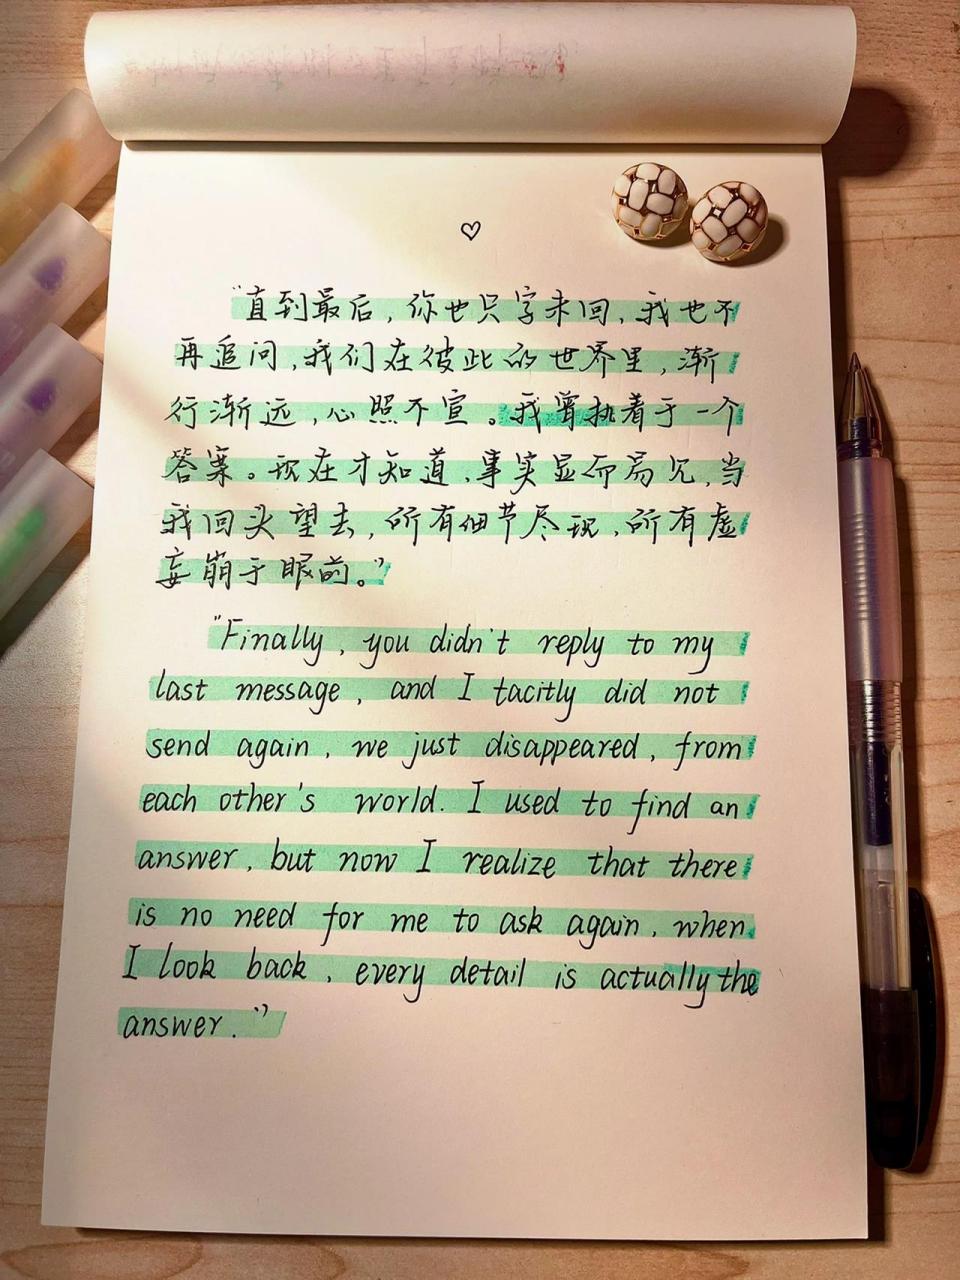 "直到最后，你也只字未回，我也不
再追问，我们在彼此的世界里，渐
行渐远，心照不宣。我曾执着于一个
答案。现在才知道，事实显而易见，当
我回头望去，所有细节尽现，所有虚
妄崩于眼前。"
"Finally, you didn't reply to my
last message, and I tacitly did not
send again, we just disappeared, from
each other's world. I used to find an
answer, but now I realize that there
is no need for me to ask again, when
I look back, every detail is actually the
answer."